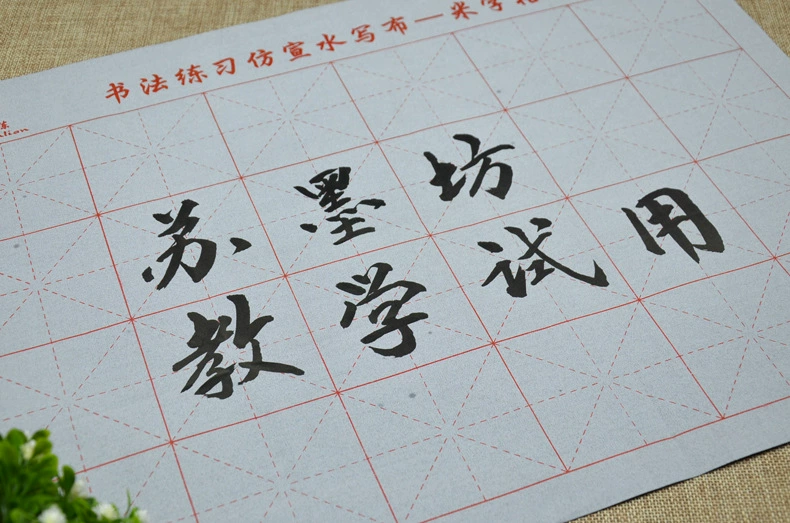 书法练习仿宣水写布—米字
苏墨坊
教学试用